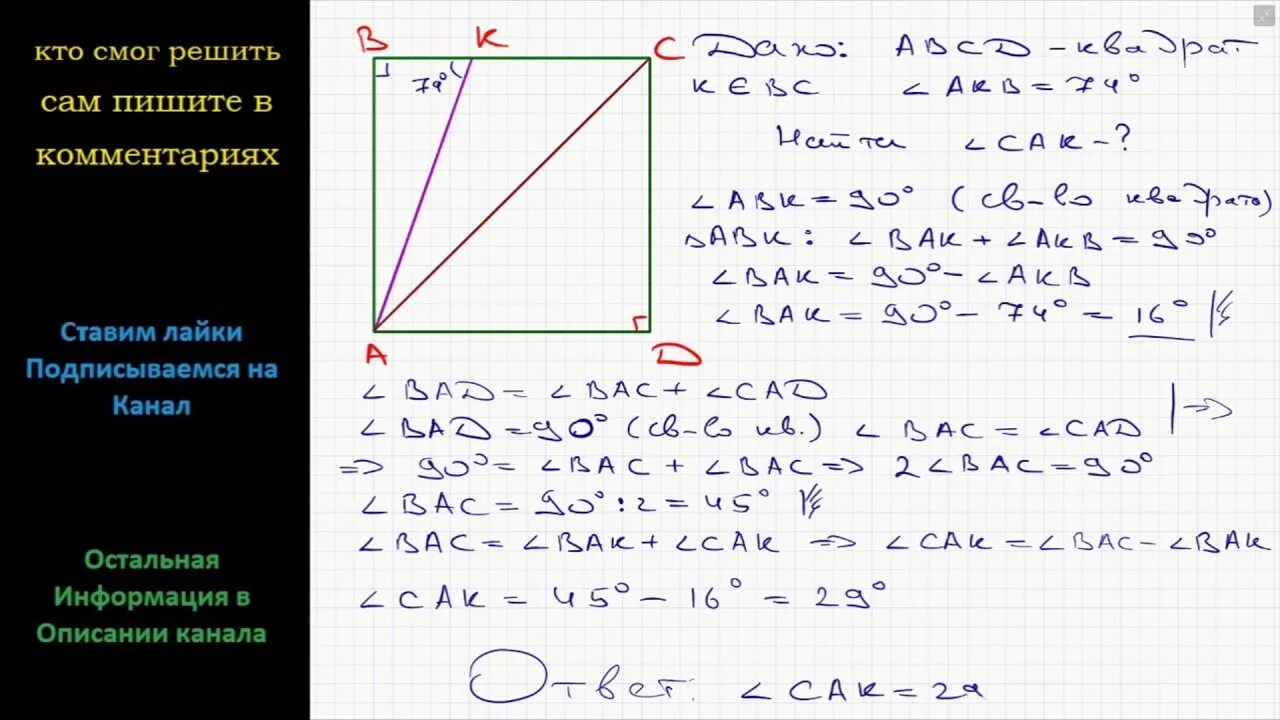 кто смог решить
сам пишите в
комментариях
Ставим лайки
Подписываемся на
Канал
Остальная
Информация в
Описании канала
B K C
74°
A D
Дано: ABCD - квадрат
K ∈ BC ∠AKB = 74°
Найти ∠CAK - ?
∠ABK = 90° (св-во квадрата)
△ABK: ∠BAK + ∠AKB = 90°
∠BAK = 90° - ∠AKB
∠BAK = 90° - 74° = 16°
∠BAD = ∠BAC + ∠CAD
∠BAD = 90° (св-во кв.) ∠BAC = ∠CAD | =>
=> 90° = ∠BAC + ∠BAC => 2∠BAC = 90°
∠BAC = 90° : 2 = 45°
∠BAC = ∠BAK + ∠CAK => ∠CAK = ∠BAC - ∠BAK
∠CAK = 45° - 16° = 29°
Ответ: ∠CAK = 29